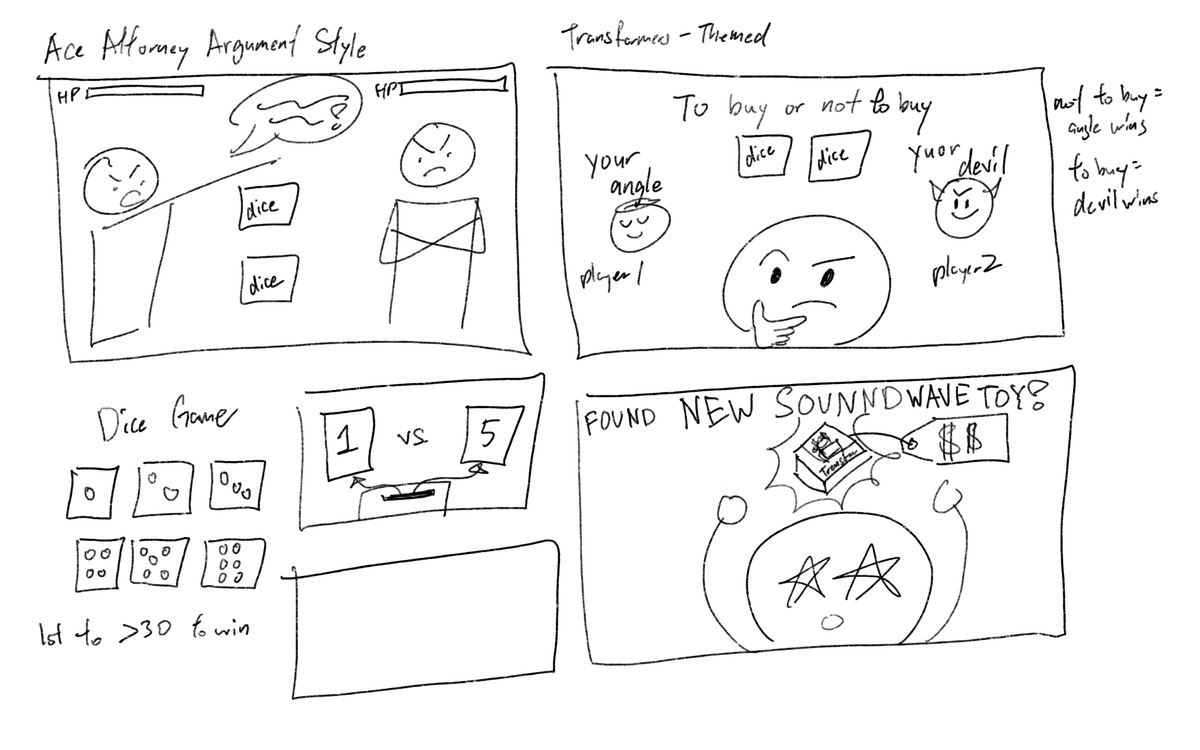 Ace Attorney Argument Style
HP
HP
?
dice
dice
Transformers - Themed
To buy or not to buy
dice
dice
your
angle
player1
yuor
devil
player2
not to buy =
angle wins
to buy =
devil wins
Dice Game
1st to >30 to win
1 vs 5
FOUND NEW SOUNNDWAVE TOY?
Transfor
$$